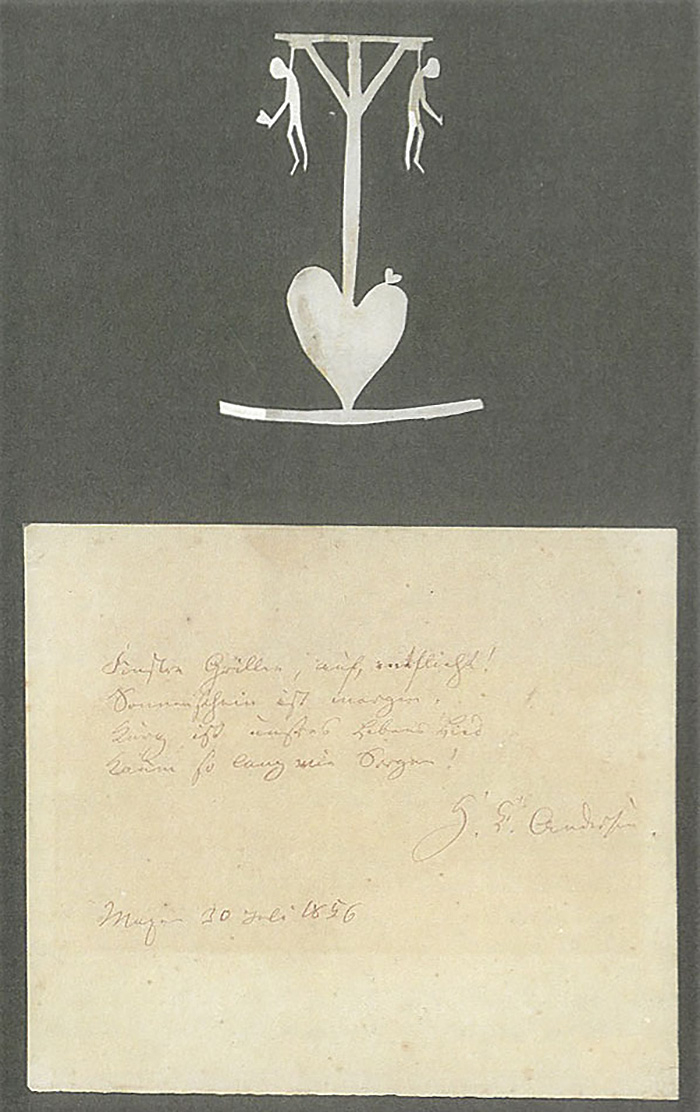 Finstre Grillen, auf, entflieht!
Sonnenschein ist morgen.
Kurz ist unsres Lebens Lied
Kaum so lang wie Sorgen!
H. C. Andersen.
Maxen 30 Juli 1856